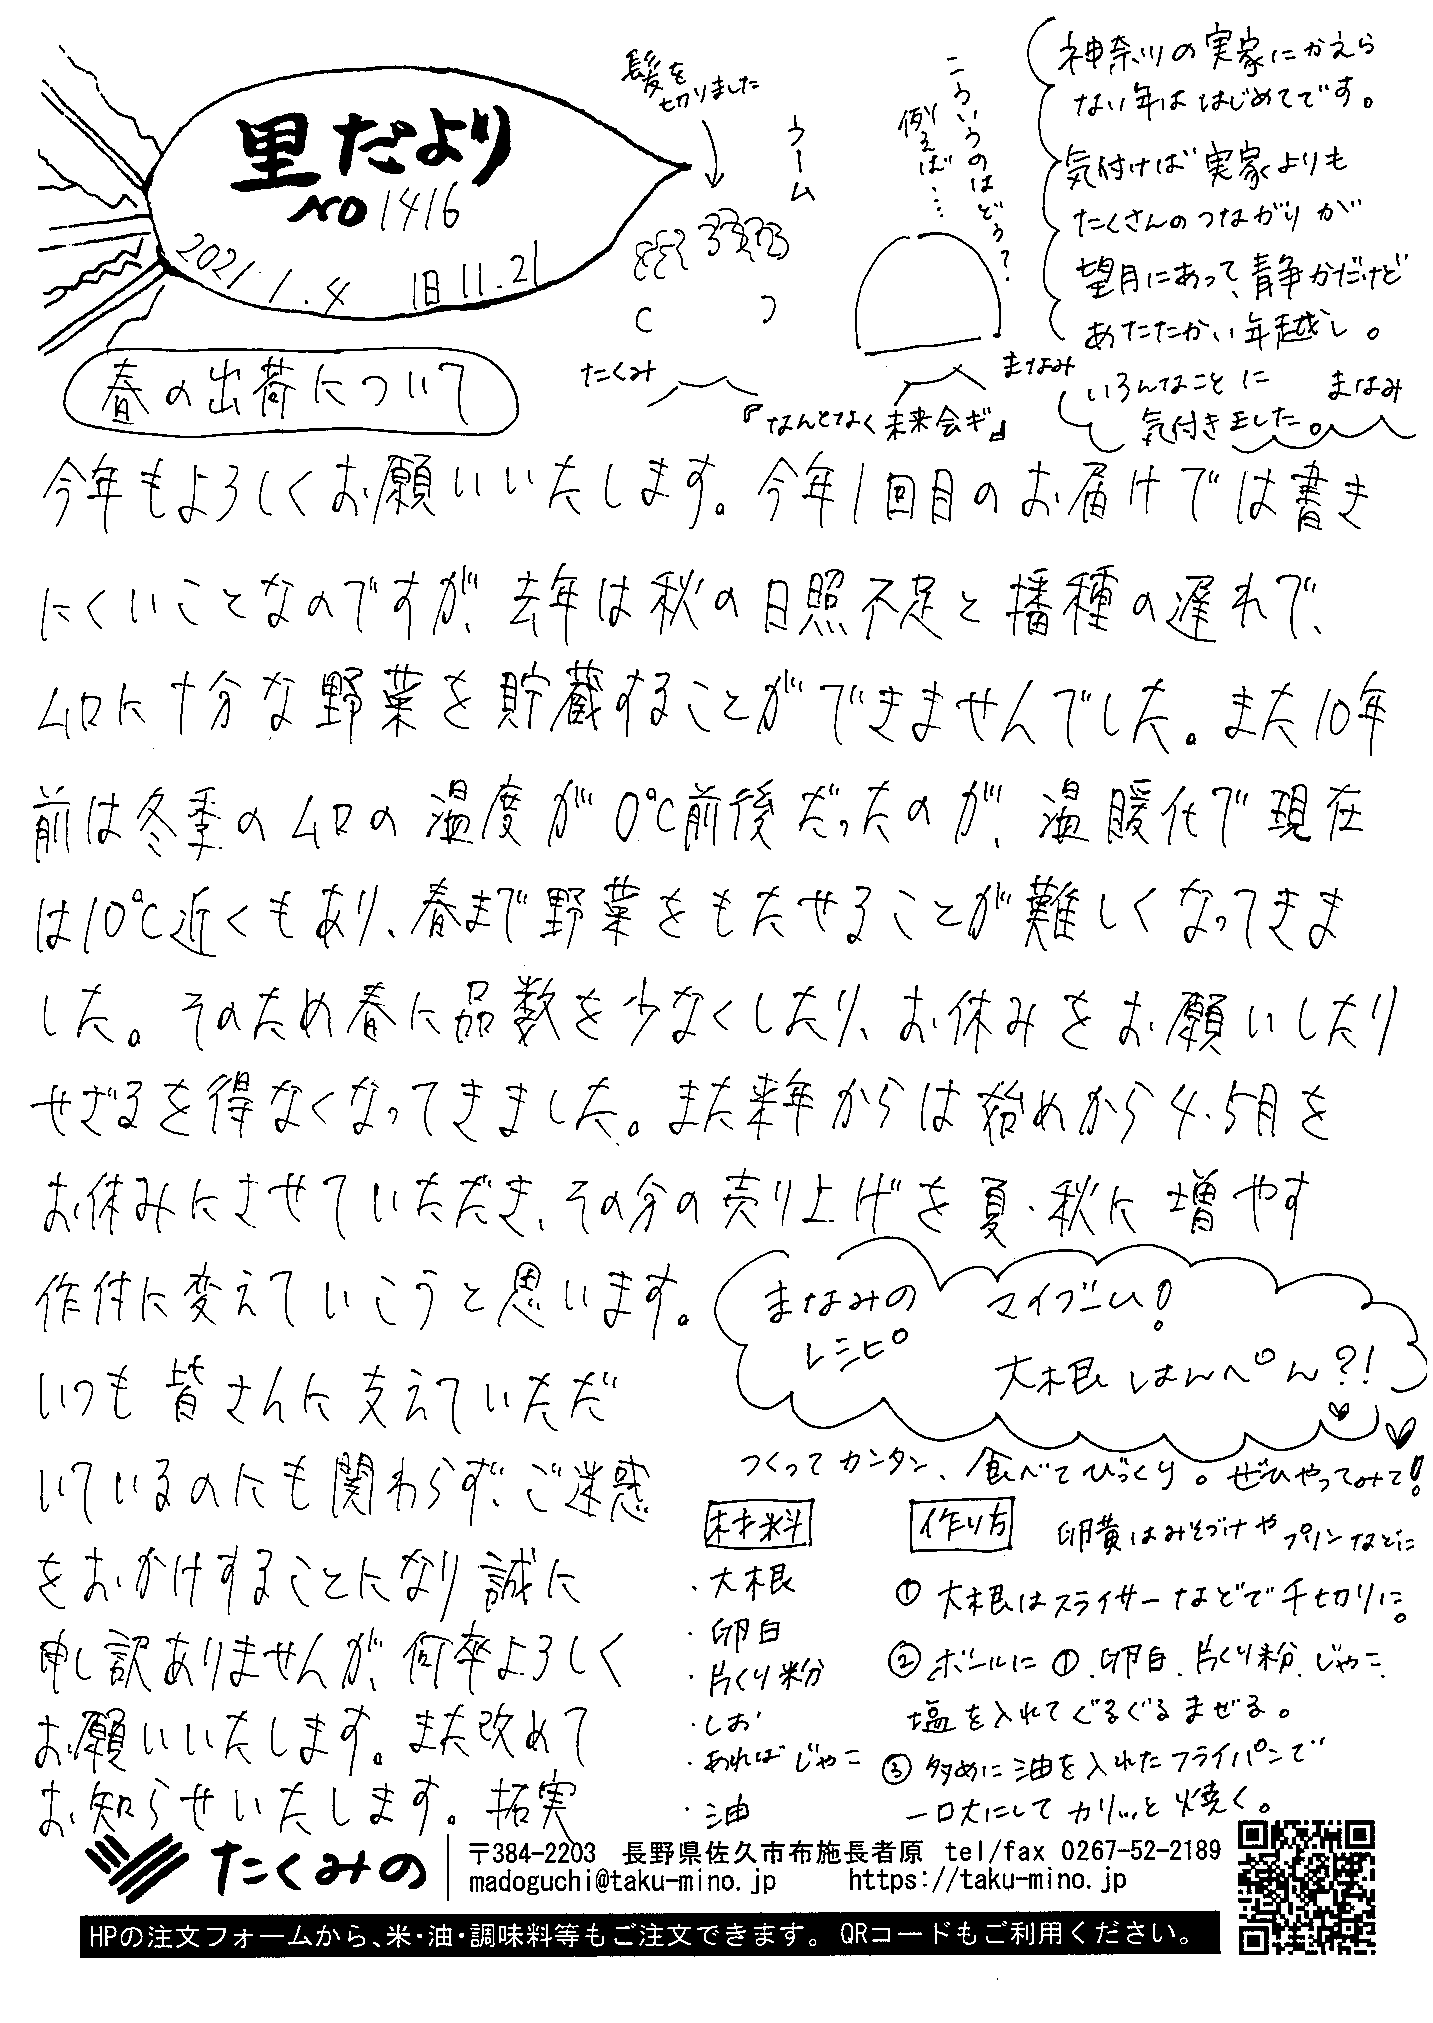 里だより
NO1416
2021.1.4 旧11.21
髪を
切りました
うーむ
こういうのはどう?
例えば…
たくみ
まなみ
『なんとなく未来会ギ』
神奈川の実家にかえら
ない年は はじめてです。
気付けば 実家よりも
たくさんのつながりが
望月にあって、静かだけど
あたたかい年越し。
いろんなことに
気付きました。
まなみ
春の出荷について
今年もよろしくお願いいたします。今年1回目のお届けでは書き
にくいことなのですが、去年は秋の日照不足と播種の遅れで、
ムロに十分な野菜を貯蔵することができませんでした。また10年
前は冬季のムロの温度が0℃前後だったのが、温暖化で現在
は10℃近くもあり、春まで野菜をもたせることが難しくなってきま
した。そのため春に品数を少なくしたり、お休みをお願いしたり
せざるを得なくなってきました。また来年からは始めから4・5月を
お休みにさせていただき、その分の売り上げを夏・秋に増やす
作付に変えていこうと思います。
いつも皆さんに支えていただ
いているのにも関わらず、ご迷惑
をおかけすることになり誠に
申し訳ありませんが、何卒よろしく
お願いいたします。また改めて
お知らせいたします。拓実
まなみの
レシピ
マイブーム!
大根はんぺん?!
つくってカンタン、食べてびっくり。ぜひやってみて!
材料
・大根
・卵白
・片くり粉
・しお
・あればじゃこ
・油
作り方
卵黄はみそづけや プリンなどに
① 大根はスライサーなどで千切りに。
② ボールに①、卵白、片くり粉、じゃこ、
塩を入れてぐるぐるまぜる。
③ 多めに油を入れたフライパンで
一口大にしてカリッと焼く。
たくみの
〒384-2203 長野県佐久市布施長者原 tel/fax 0267-52-2189
madoguchi@taku-mino.jp https://taku-mino.jp
HPの注文フォームから、米・油・調味料等もご注文できます。QRコードもご利用ください。